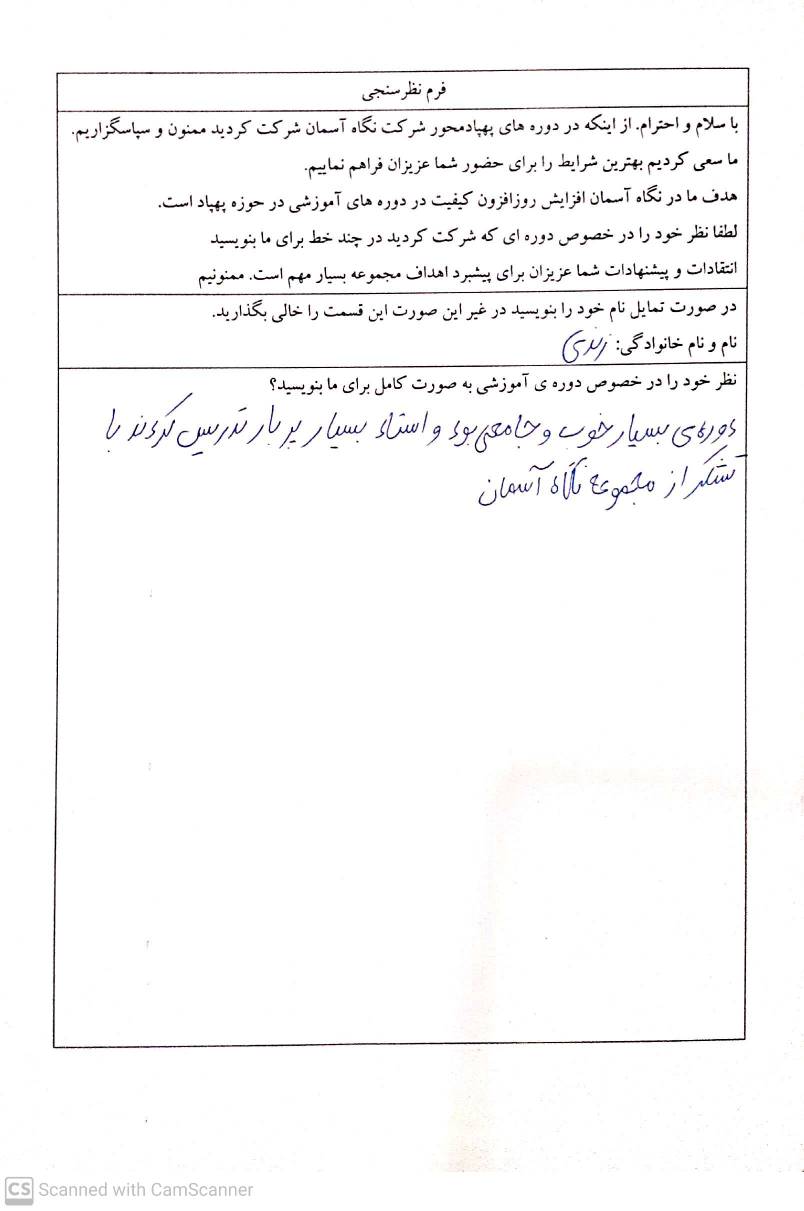 فرم نظرسنجی
با سلام و احترام. از اینکه در دوره های پهپادمحور شرکت نگاه آسمان شرکت کردید ممنون و سپاسگزاریم.
ما سعی کردیم بهترین شرایط را برای حضور شما عزیزان فراهم نماییم.
هدف ما در نگاه آسمان افزایش روزافزون کیفیت در دوره های آموزشی در حوزه پهپاد است.
لطفا نظر خود را در خصوص دوره ای که شرکت کردید در چند خط برای ما بنویسید
انتقادات و پیشنهادات شما عزیزان برای پیشبرد اهداف مجموعه بسیار مهم است. ممنونیم
در صورت تمایل نام خود را بنویسید در غیر این صورت این قسمت را خالی بگذارید.
نام و نام خانوادگی: زندی
نظر خود را در خصوص دوره ی آموزشی به صورت کامل برای ما بنویسید؟
دوره‌ی بسیار خوب و جامعی بود و استاد بسیار پر بار تدریس کردند با
تشکر از مجموعه نگاه آسمان
CS Scanned with CamScanner